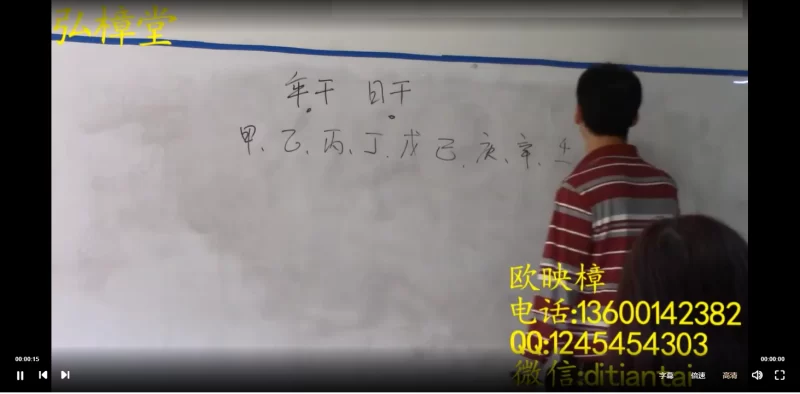 弘樟堂
年干 日干
甲、乙、丙、丁、戊 己、庚、辛、
欧映樟
电话:13600142382
QQ:1245454303
微信:ditiantai
00:00:15
00:00:00
字幕 倍速 高清